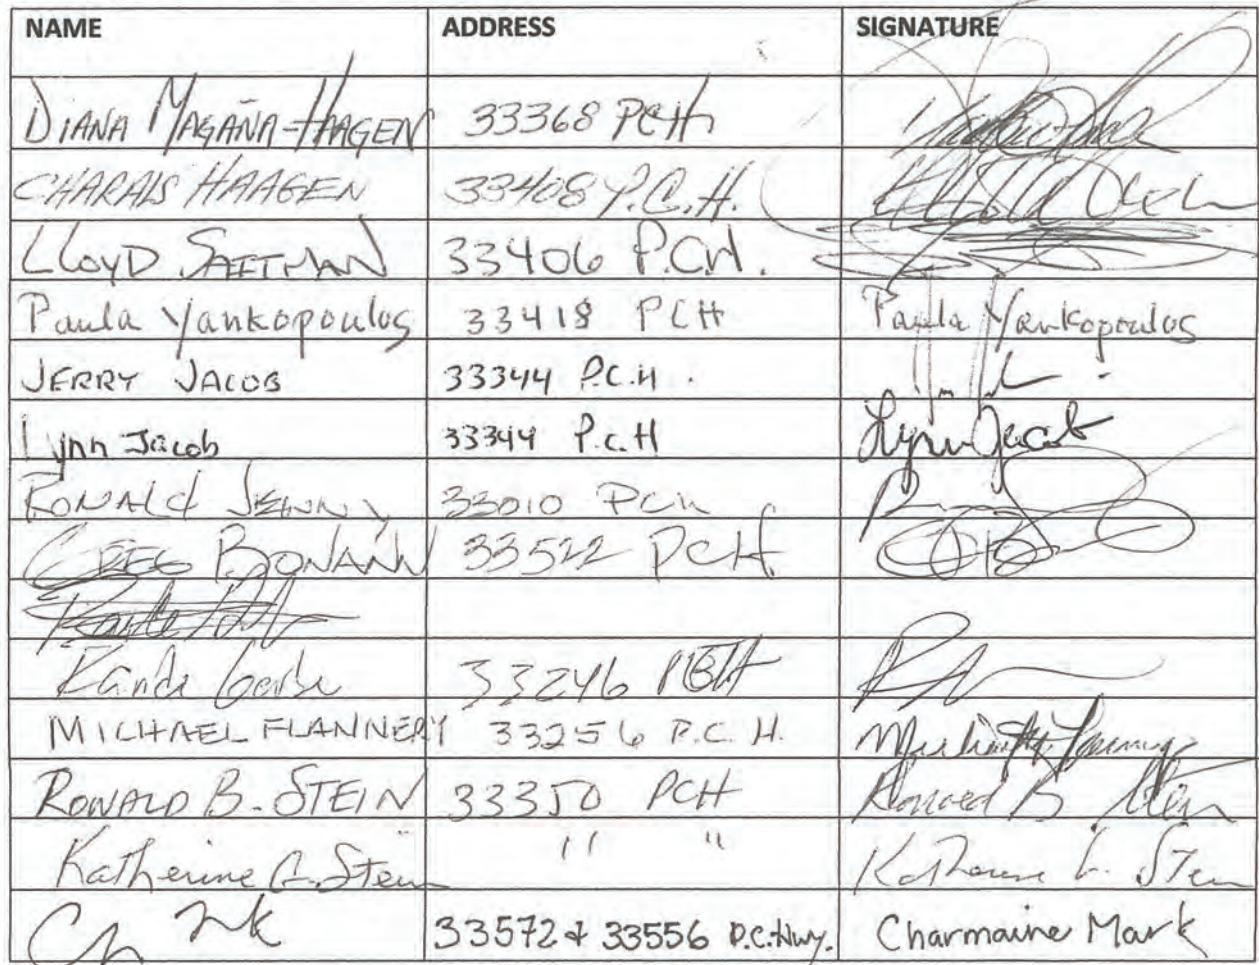 NAME ADDRESS SIGNATURE
DIANA MAGAÑA-HAAGEN 33368 PCH
CHARALS HAAGEN 33408 P.C.H.
LLOYD SAITMAN 33406 P.C.H.
Paula Yankopoulos 33418 PCH Paula Yankopoulos
JERRY JACOB 33344 P.C.H.
Lynn Jacob 33344 P.C.H Lynn Jacob
RONALd 33010 PCH
GREG BONANN 33522 PCH
33246 PCH
MICHAEL FLANNERY 33256 P.C.H.
RONALD B. STEIN 33350 PCH Ronald B Stein
Katherine Stein " " Stein
33572 & 33556 P.C.Hwy. Charmaine Mark